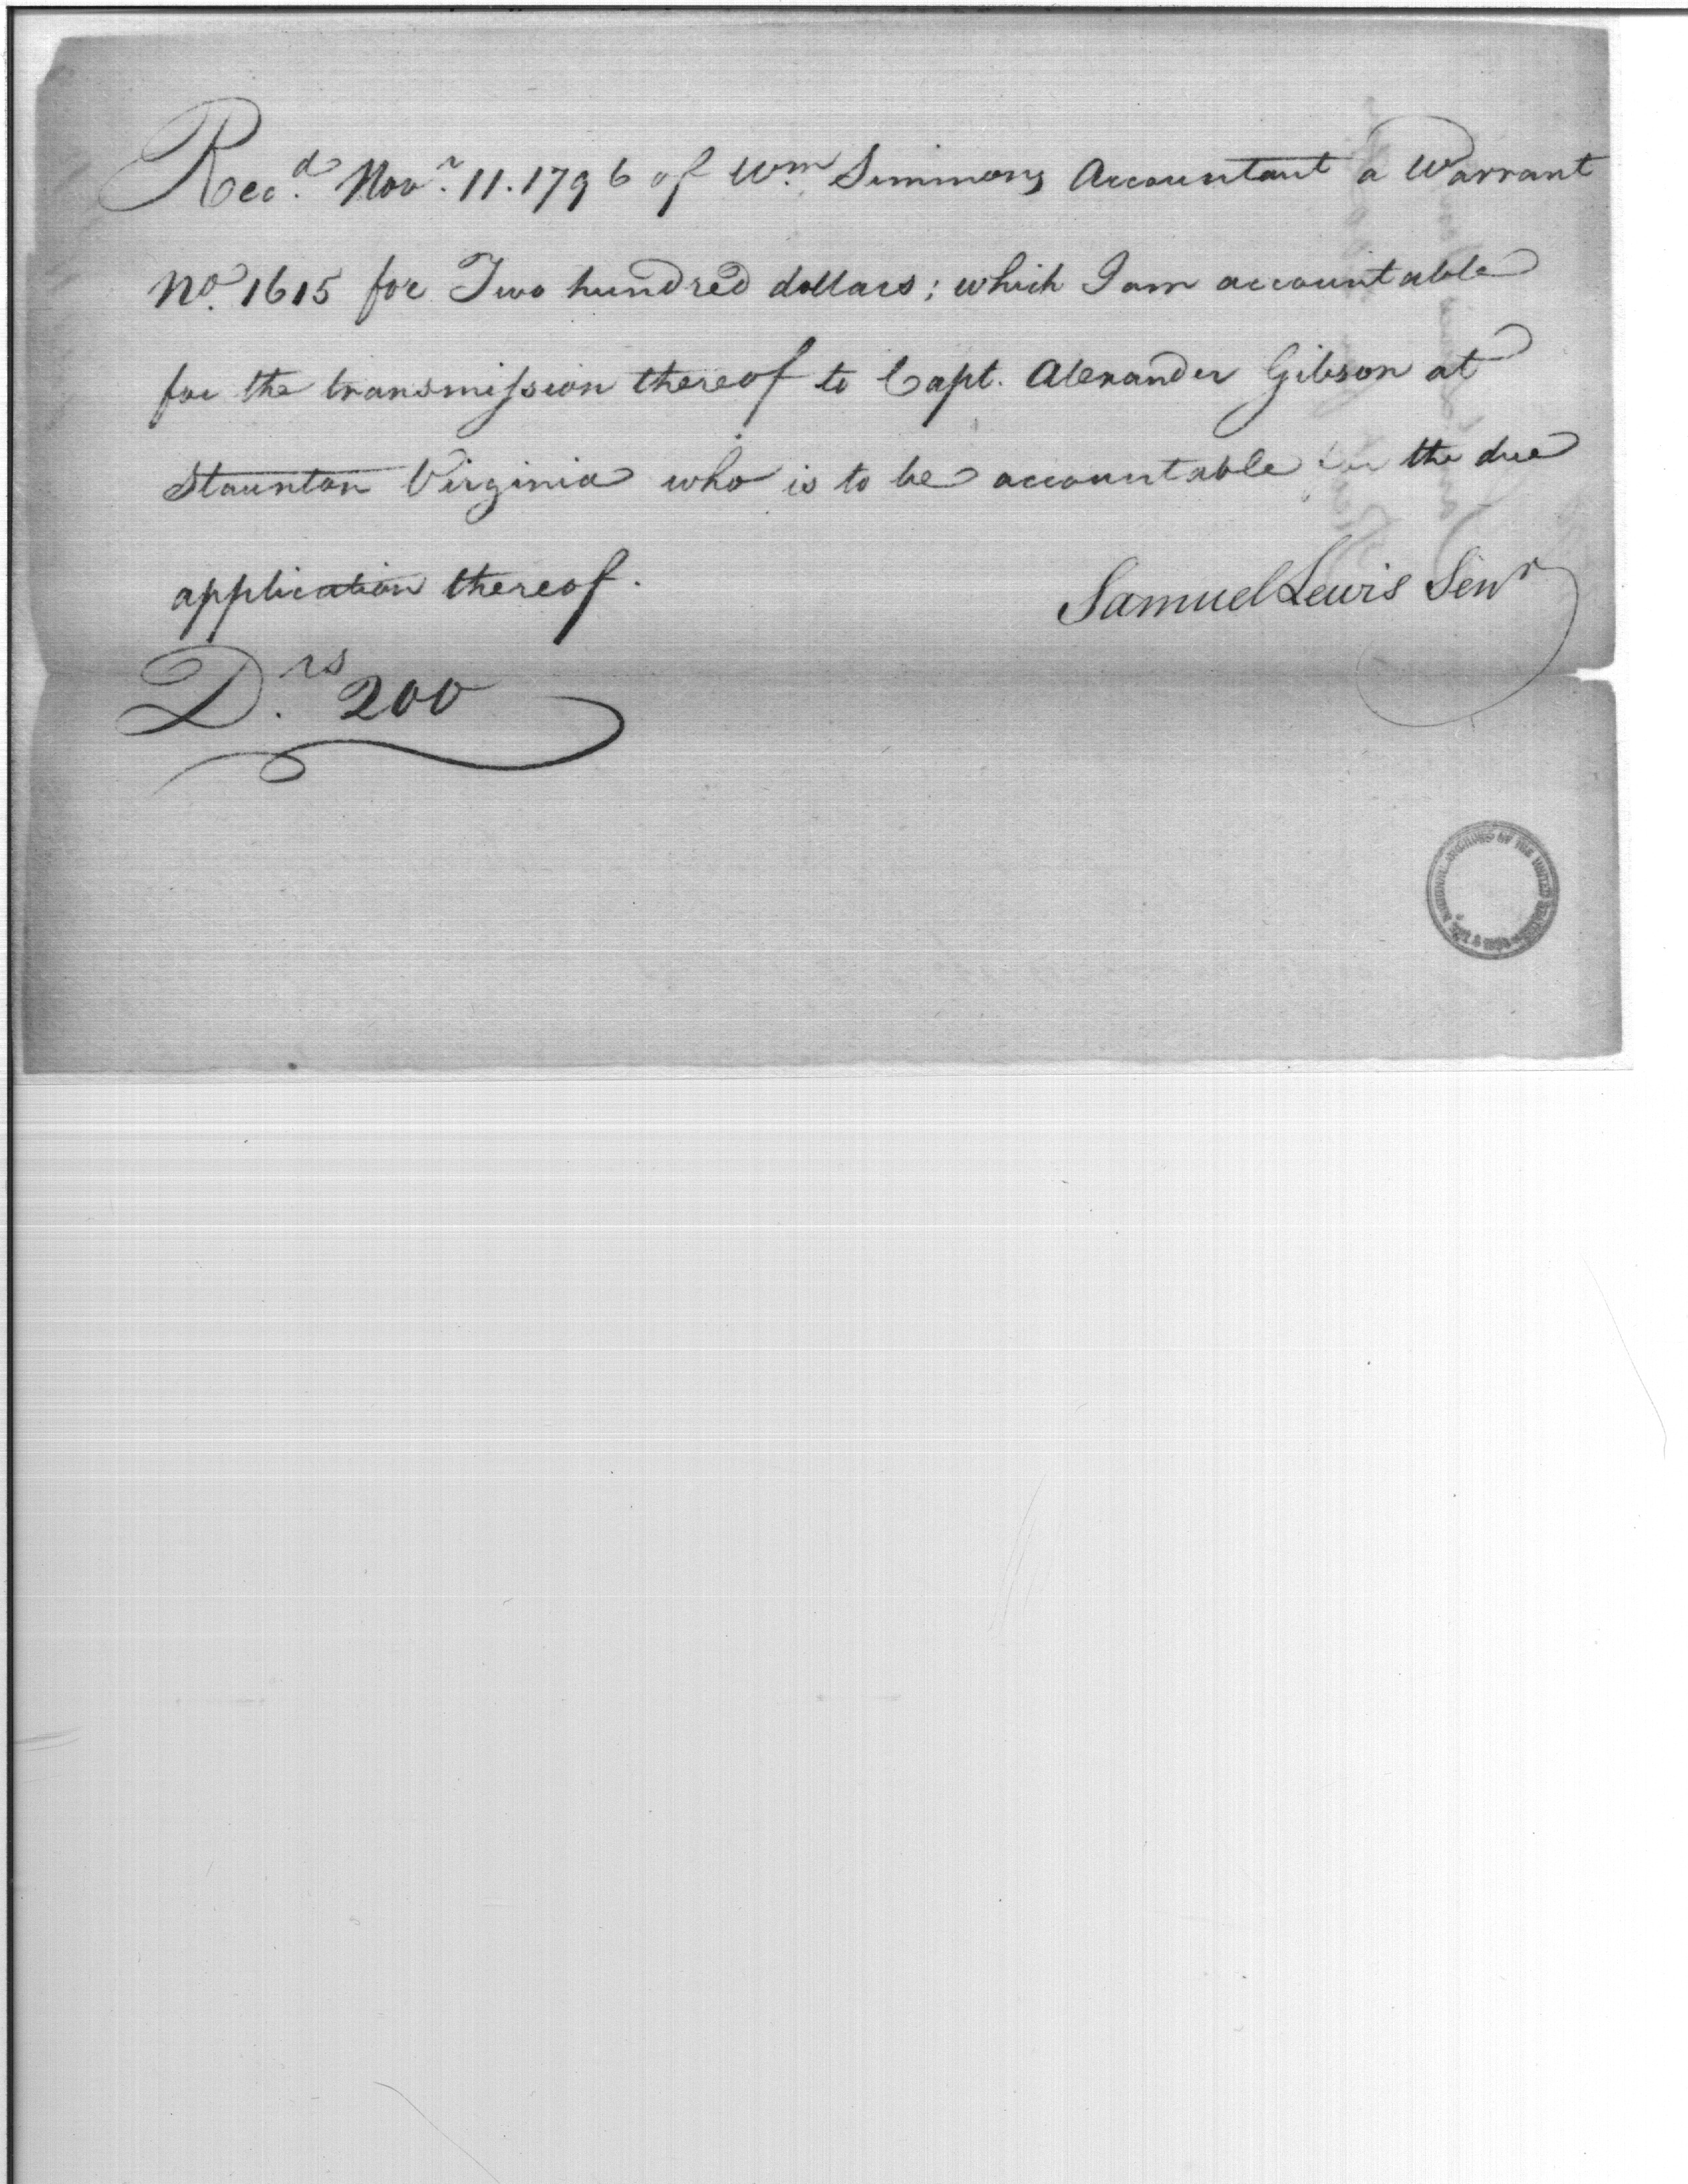 Recd. Novr. 11. 1796 of Wm. Simmons Accountant a Warrant
No. 1615 for Two hundred dollars; which I am accountable
for the transmission thereof to Capt. Alexander Gibson at
Staunton Virginia who is to be accountable for the due
application thereof.
Samuel Lewis Senr
Drs. 200
NATIONAL ARCHIVES OF THE UNITED STATES